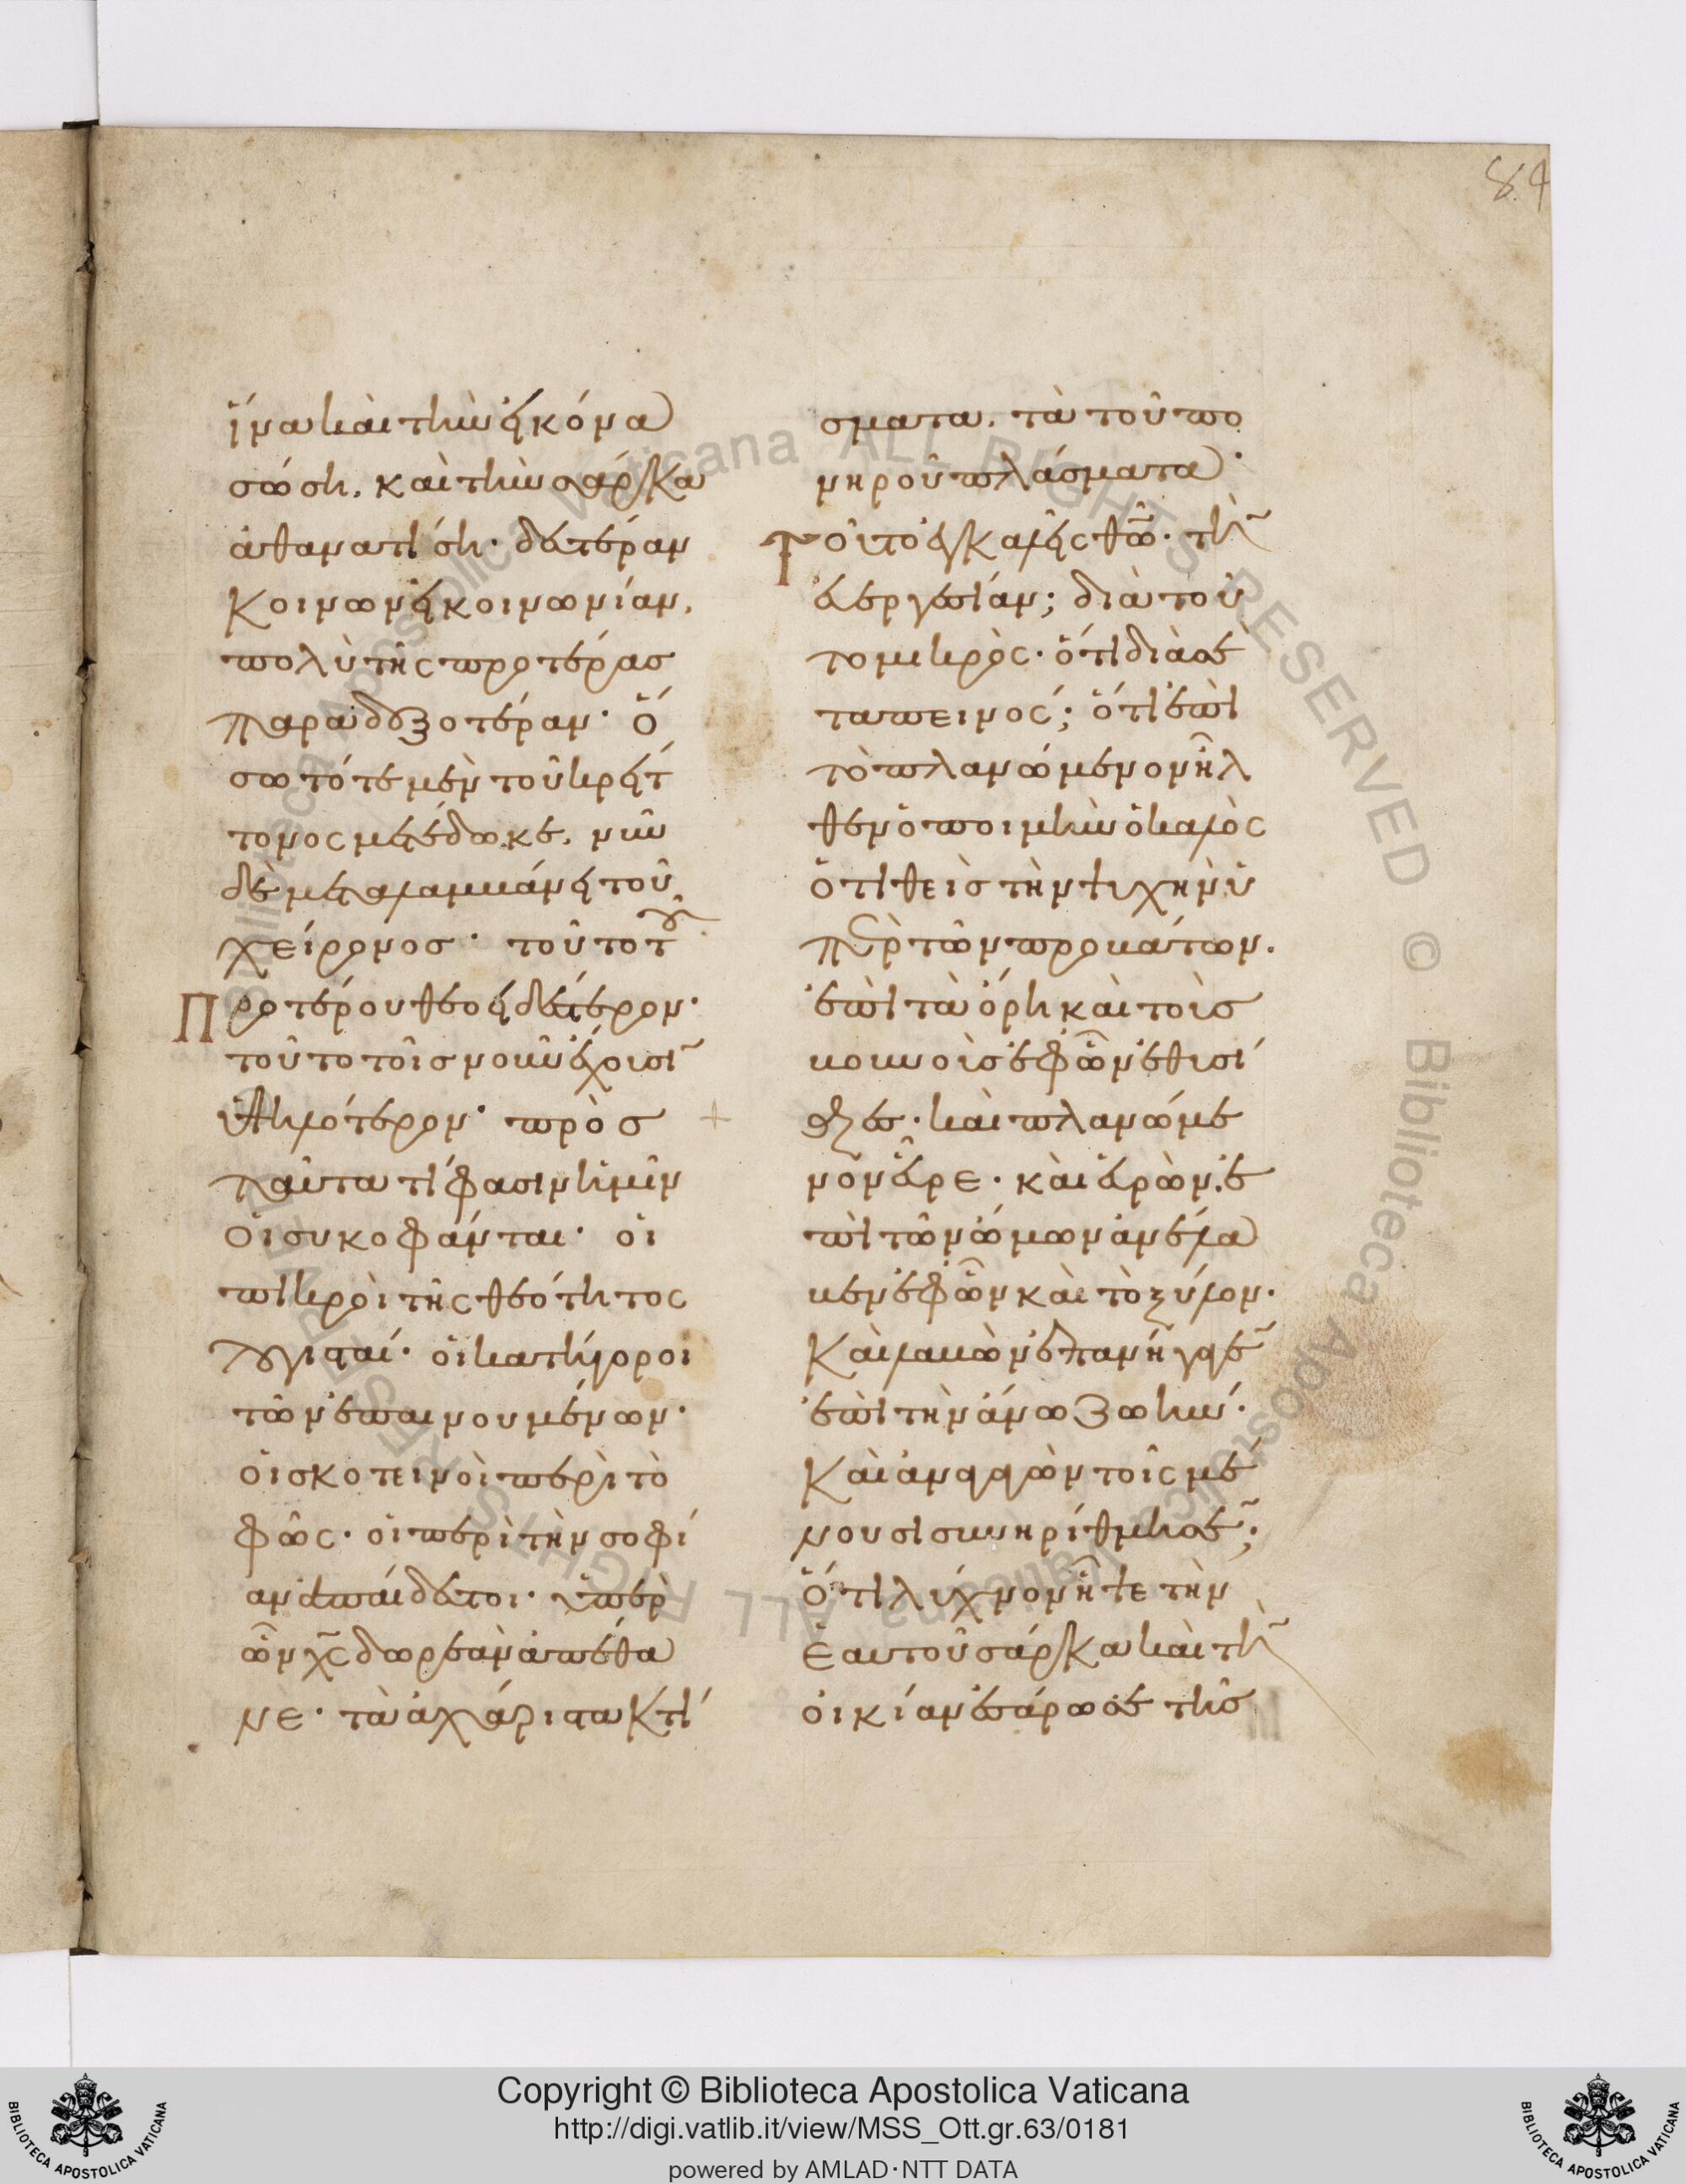 84
ἵνα καὶ τὴν εἰκόνα
σώση, καὶ τὴν σάρκα
ἀθανατίση· δευτέραν
κοινωνεῖ κοινωνίαν,
πολὺ τῆς προτέρας
παραδοξοτέραν· ὅ
σω τότε μὲν τοῦ κρείτ
τονος μετέδωκε, νῦν
δὲ μεταλαμβάνει τοῦ
χείρονος· τοῦτο τοῦ
Προτέρου θεοειδέστερον·
τοῦτο τοῖς νοῦν ἔχουσι
ὑψηλότερον· πρὸς
ταῦτα τί φασιν ἡμῖν
οἱ συκοφάνται· οἱ
πικροὶ τῆς θεότητος
λογισταί· οἱ κατήγοροι
τῶν ἐπαινουμένων·
οἱ σκοτεινοὶ περὶ τὸ
φῶς· οἱ περὶ τὴν σοφί
αν ἀπαίδευτοι· ὑπὲρ
ὧν χς δωρεὰν ἀπέθα
νε· τὰ ἀχάριστα κτί
σματα, τὰ τοῦ πο
νηροῦ πλάσματα·
Τοῦτο ἐγκαλεῖς θῶ· τὴν
εὐεργεσίαν; διὰ τοῦ
το μικρὸς· ὅτι διὰ σὲ
ταπεινός; ὅτι ἐπὶ
τὸ πλανώμενον ἦλ
θεν ὁ ποιμὴν ὁ καλὸς
ὁ τιθεὶς τὴν ψυχὴν ὑ
πὲρ τῶν προβάτων.
ἐπὶ τὰ ὄρη καὶ τοὺς
βουνοὺς ἐφ' ὧν ἐθυσί
αζες· καὶ πλανώμε
νον εὗρε· καὶ εὑρὼν ἐ
πὶ τῶν ὤμων ἀνέλα
βεν ἐφ' ὧν καὶ τὸ ξύλον·
Καὶ λαβὼν ἐπανήγαγεν
ἐπὶ τὴν ἄνω ζωήν·
Καὶ ἀναγαγὼν τοῖς μέ
νουσι συνηρίθμησεν;
Ὅτι λύχνον ἧψε τὴν
ἑαυτοῦ σάρκα καὶ τὴν
οἰκίαν ἐσάρωσε τῆς
Copyright © Biblioteca Apostolica Vaticana
http://digi.vatlib.it/view/MSS_Ott.gr.63/0181
powered by AMLAD·NTT DATA